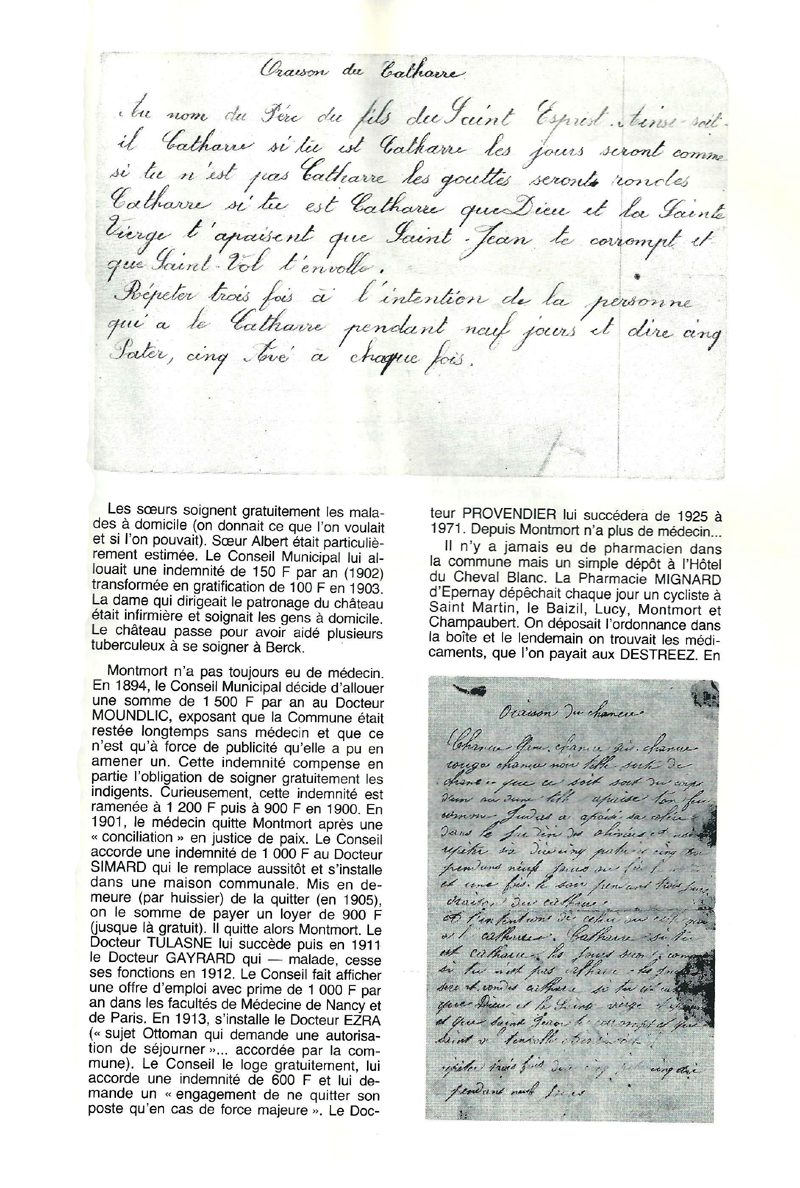 Oraison du Catharre
Au nom du Père du fils du Saint Esprit. Ainsi-soit-
il Catharre si tu est Catharre les jours seront comme
si tu n'est pas Catharre les gouttes seront rondes
Catharre si tu est Catharre que Dieu et la Sainte
Vierge t'apaisent que Saint-Jean te corrompt et
que Saint-Vol t'envolle.
Répeter trois fois à l'intention de la personne
qui a le Catharre pendant neuf jours et dire cinq
Pater, cinq Avé à chaque fois.
Les sœurs soignent gratuitement les mala-
des à domicile (on donnait ce que l'on voulait
et si l'on pouvait). Sœur Albert était particuliè-
rement estimée. Le Conseil Municipal lui al-
louait une indemnité de 150 F par an (1902)
transformée en gratification de 100 F en 1903.
La dame qui dirigeait le patronage du château
était infirmière et soignait les gens à domicile.
Le château passe pour avoir aidé plusieurs
tuberculeux à se soigner à Berck.
Montmort n'a pas toujours eu de médecin.
En 1894, le Conseil Municipal décide d'allouer
une somme de 1 500 F par an au Docteur
MOUNDLIC, exposant que la Commune était
restée longtemps sans médecin et que ce
n'est qu'à force de publicité qu'elle a pu en
amener un. Cette indemnité compense en
partie l'obligation de soigner gratuitement les
indigents. Curieusement, cette indemnité est
ramenée à 1 200 F puis à 900 F en 1900. En
1901, le médecin quitte Montmort après une
« conciliation » en justice de paix. Le Conseil
accorde une indemnité de 1 000 F au Docteur
SIMARD qui le remplace aussitôt et s'installe
dans une maison communale. Mis en de-
meure (par huissier) de la quitter (en 1905),
on le somme de payer un loyer de 900 F
(jusque là gratuit). Il quitte alors Montmort. Le
Docteur TULASNE lui succède puis en 1911
le Docteur GAYRARD qui — malade, cesse
ses fonctions en 1912. Le Conseil fait afficher
une offre d'emploi avec prime de 1 000 F par
an dans les facultés de Médecine de Nancy et
de Paris. En 1913, s'installe le Docteur EZRA
(« sujet Ottoman qui demande une autorisa-
tion de séjourner »... accordée par la com-
mune). Le Conseil le loge gratuitement, lui
accorde une indemnité de 600 F et lui de-
mande un « engagement de ne quitter son
poste qu'en cas de force majeure ». Le Doc-
teur PROVENDIER lui succédera de 1925 à
1971. Depuis Montmort n'a plus de médecin...
Il n'y a jamais eu de pharmacien dans
la commune mais un simple dépôt à l'Hôtel
du Cheval Blanc. La Pharmacie MIGNARD
d'Epernay dépêchait chaque jour un cycliste à
Saint Martin, le Baizil, Lucy, Montmort et
Champaubert. On déposait l'ordonnance dans
la boîte et le lendemain on trouvait les médi-
caments, que l'on payait aux DESTREEZ. En
Oraison du chancre
chancre chancre gris chancre
rouge chancre noir
que ce soit
comme Judas a
dans le jardin des
cinq
pendans neuf jours
et une fois le soir pendans trois jours
oraison du cathare
a l'intentions de celui ou celle qui
a l catharre. Catharre si tu
est catharre les jours
si tu nest pas catharre les
rondes catharre si tu
que Dieu et la Sainte vierge
et que saint Jean te corrompt et que
saint
trois fois cinq cinq
pendans neuf jours